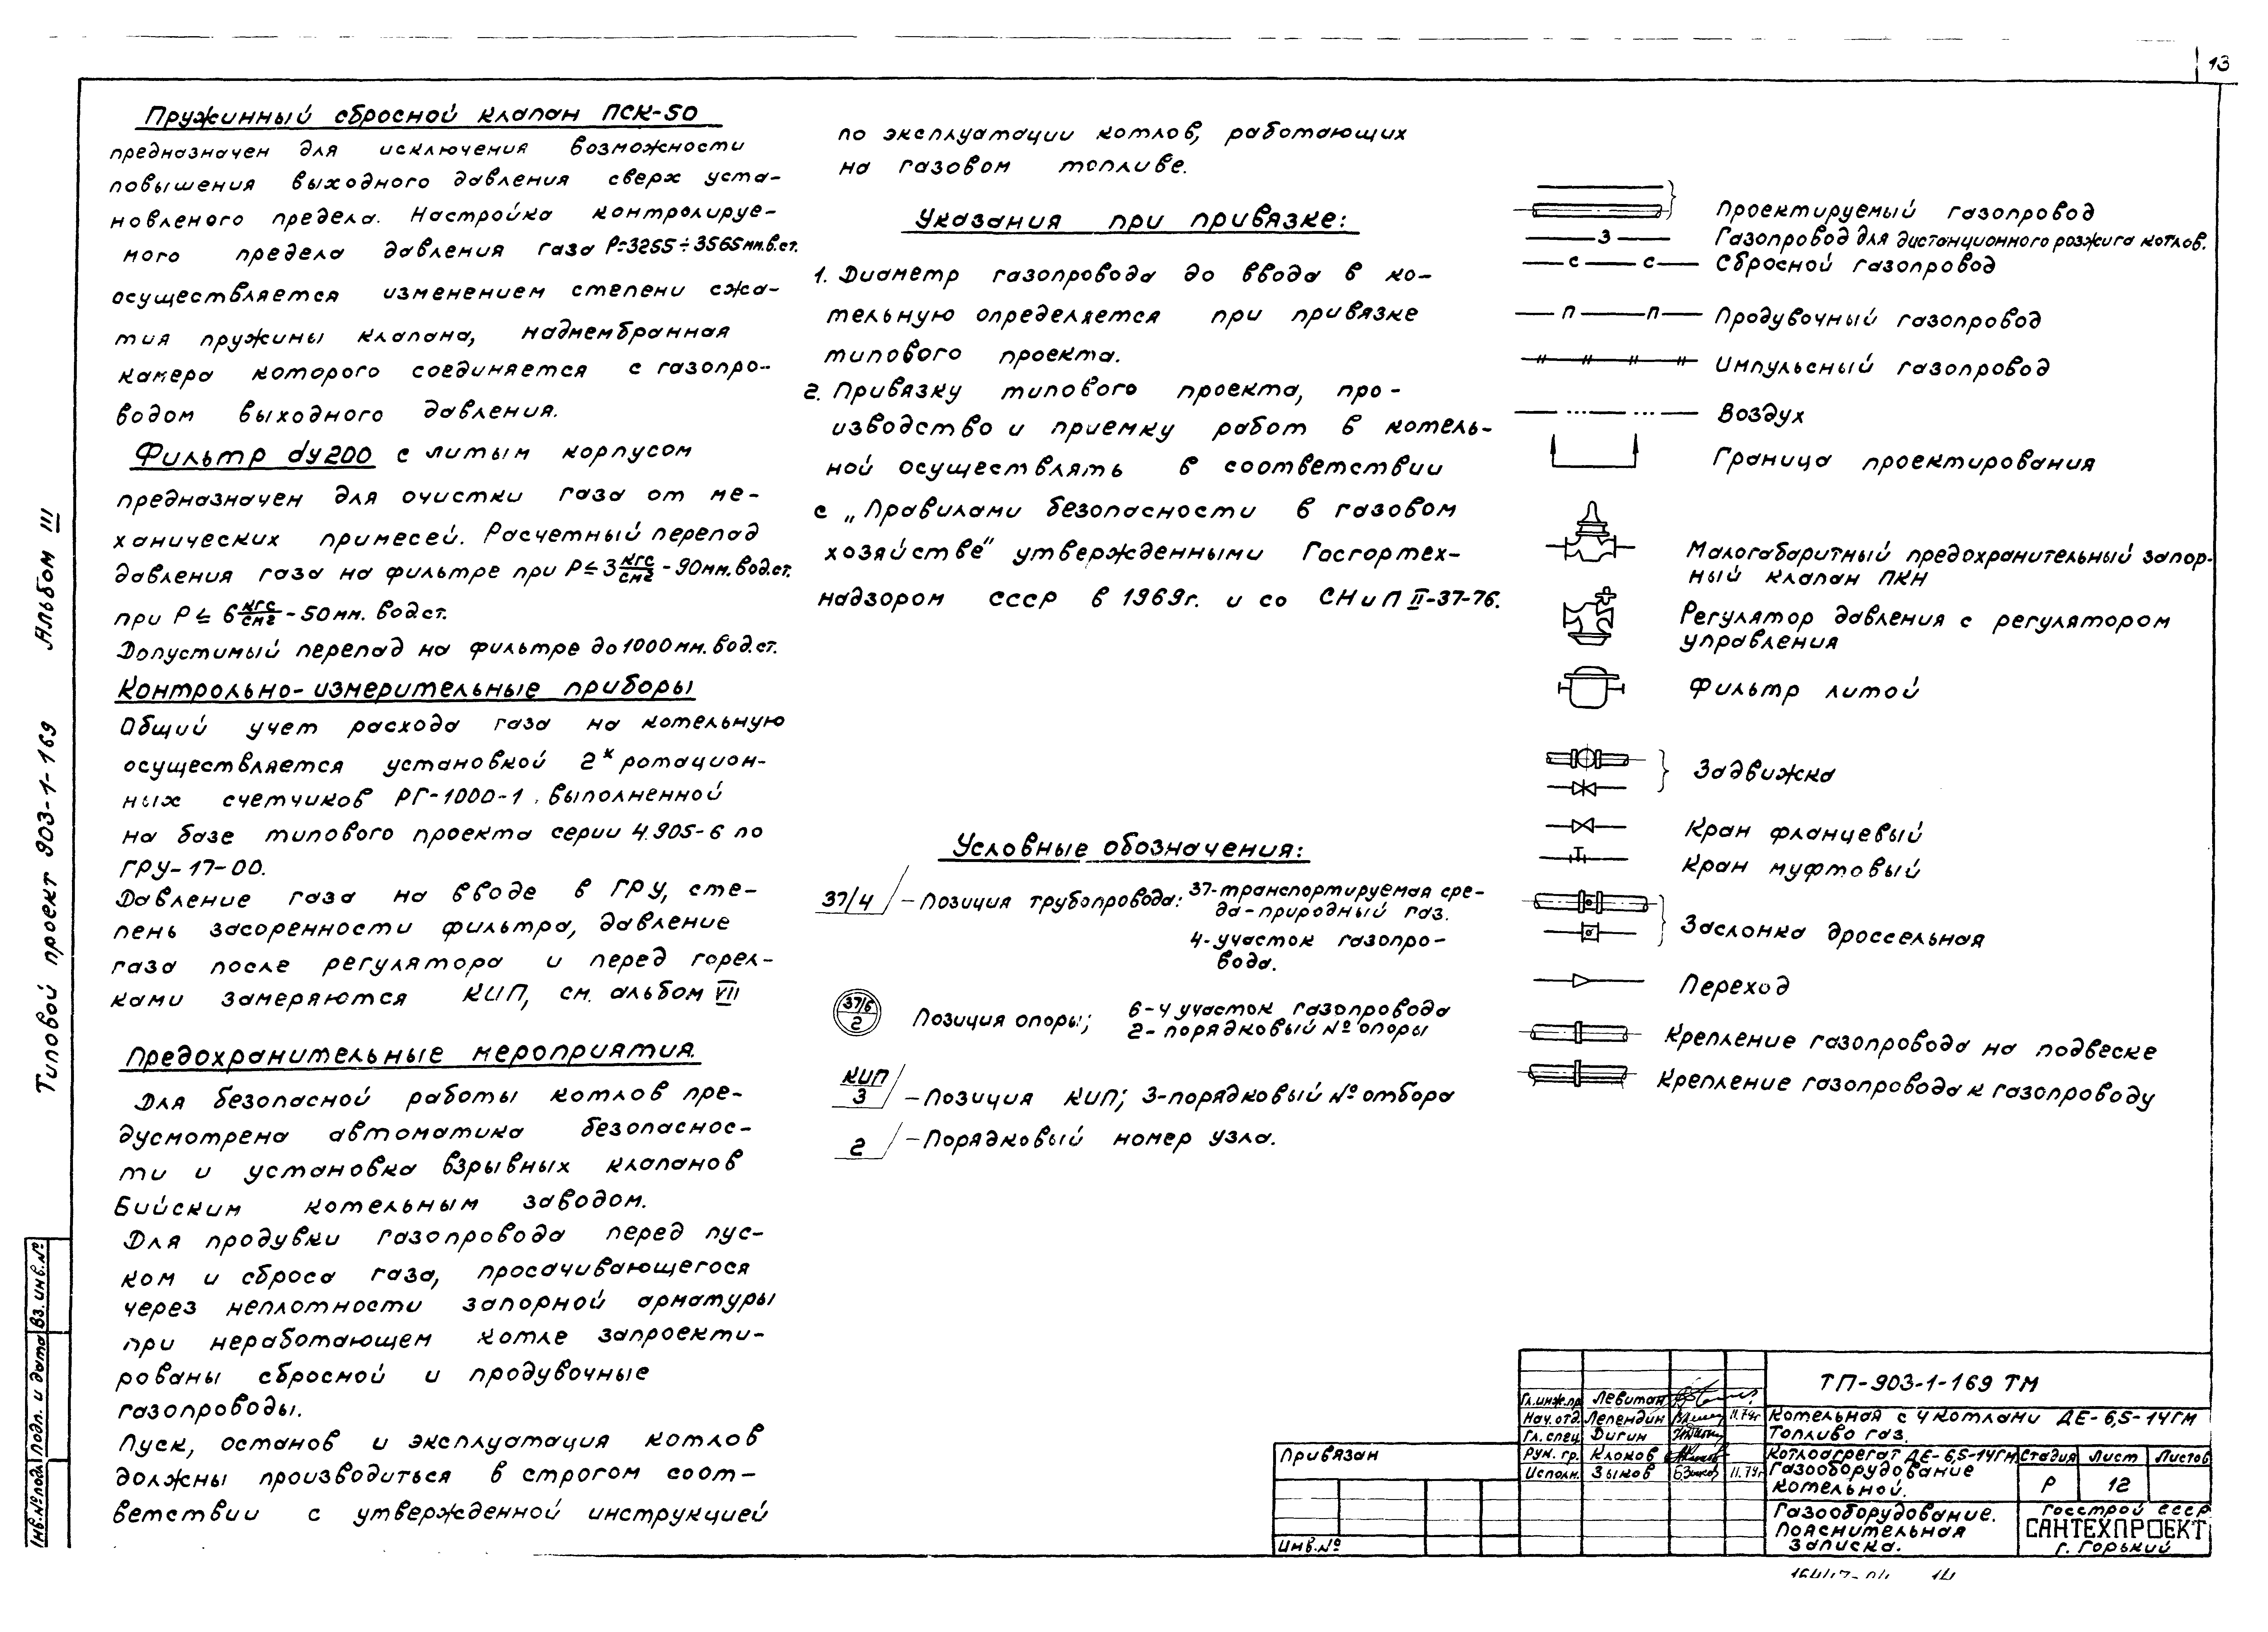 13
Пружинный сбросной клапан ПСК-50
предназначен для исключения возможности
повышения выходного давления сверх уста-
новленого предела. Настройка контролируе-
мого предела давления газа Р=3265÷3565мм.в.ст.
осуществляется изменением степени сжа-
тия пружины клапана, надмембранная
камера которого соединяется с газопро-
водом выходного давления.
Фильтр dу200 с литым корпусом
предназначен для очистки газа от ме-
ханических примесей. Расчетный перепад
давления газа на фильтре при Р≤3 кгс/см2 - 90мм.вод.ст.
при Р ≤ 6 кгс/см2 - 50мм. вод.ст.
Допустимый перепад на фильтре до 1000мм.вод.ст.
Контрольно-измерительные приборы
Общий учет расхода газа на котельную
осуществляется установкой 2х ротацион-
ных счетчиков РГ-1000-1, выполненной
на базе типового проекта серии 4.905-6 по
ГРУ-17-00.
Давление газа на вводе в ГРУ, сте-
пень засоренности фильтра, давление
газа после регулятора и перед горел-
ками замеряются КИП, см. альбом VII
Предохранительные мероприятия.
Для безопасной работы котлов пре-
дусмотрена автоматика безопаснос-
ти и установка взрывных клапанов
Бийским котельным заводом.
Для продувки газопровода перед пус-
ком и сброса газа, просачивающегося
через неплотности запорной арматуры
при неработающем котле запроекти-
рованы сбросной и продувочные
газопроводы.
Пуск, останов и эксплуатация котлов
должны производиться в строгом соот-
ветствии с утвержденной инструкцией
по эксплуатации котлов, работающих
на газовом топливе.
Указания при привязке:
1. Диаметр газопровода до ввода в ко-
тельную определяется при привязке
типового проекта.
2. Привязку типового проекта, про-
изводство и приемку работ в котель-
ной осуществлять в соответствии
с „Правилами безопасности в газовом
хозяйстве" утвержденными Госгортех-
надзором СССР в 1969г. и со СНиП II-37-76.
Условные обозначения:
37/4 - Позиция трубопровода: 37-транспортируемая сре-
да-природный газ.
4-участок газопро-
вода.
37/6
2
Позиция опоры; 6-й участок газопровода
2-порядковый № опоры
КИП
3 - Позиция КИП; 3-порядковый № отбора
2 - Порядковый номер узла.
Проектируемый газопровод
З Газопровод для дистанционного розжига котлов.
С С Сбросной газопровод
П П Продувочный газопровод
Импульсный газопровод
Воздух
Граница проектирования
Малогабаритный предохранительный запор-
ный клапан ПКН
Регулятор давления с регулятором
управления
Фильтр литой
Задвижка
Кран фланцевый
Кран муфтовый
Заслонка дроссельная
Переход
Крепление газопровода на подвеске
Крепление газопровода к газопроводу
Типовой проект 903-1-169 Альбом III
Инв.№подл Подл. и дата Вз. инв.№
Привязан
Инв.№
Гл.инж.пр Левитан
Нач.отд. Лепендин 11.79г
Гл. спец. Дигин
Рук. гр. Клоков
Исполн. Зыков 11.79г
ТП-903-1-169 ТМ
Котельная с 4 котлами ДЕ-6,5-14ГМ
Топливо газ.
Котлоагрегат ДЕ-6,5-14ГМ
Газооборудование
котельной.
Стадия Лист Листов
Р 12
Газооборудование.
Пояснительная
записка.
Госстрой СССР
САНТЕХПРОЕКТ
г. Горький
14